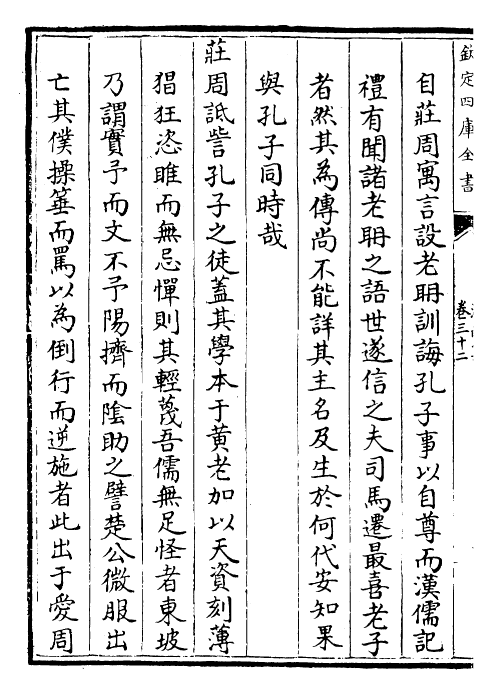 欽定四庫全書
卷三十二
自莊周寓言設老聃訓誨孔子事以自尊而漢儒記
禮有聞諸老聃之語世遂信之夫司馬遷最喜老子
者然其為傳尚不能詳其主名及生於何代安知果
與孔子同時哉
莊周詆訾孔子之徒蓋其學本于黄老加以天資刻薄
猖狂恣睢而無忌憚則其輕蔑吾儒無足怪者東坡
乃謂實予而文不予陽擠而陰助之譬楚公微服出
亡其僕操箠而罵以為倒行而逆施者此出于愛周